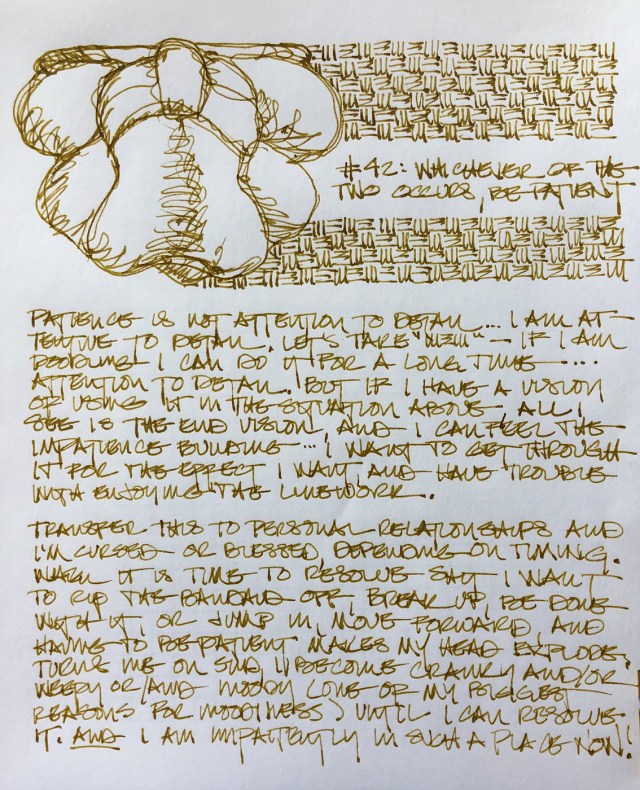 #42: WHICHEVER OF THE
TWO OCCURS, BE PATIENT
PATIENCE IS NOT ATTENTION TO DETAIL... I AM AT-
TENTIVE TO DETAIL. LET'S TAKE — IF I AM
DOODLING I CAN DO IT FOR A LONG TIME ....
ATTENTION TO DETAIL. BUT IF I HAVE A VISION
OF USING IT IN THE SITUATION ABOVE, ALL I
SEE IS THE END VISION, AND I CAN FEEL THE
IMPATIENCE BUILDING... I WANT TO GET THROUGH
IT FOR THE EFFECT I WANT, AND HAVE TROUBLE
WITH ENJOYING THE LINEWORK.
TRANSFER THIS TO PERSONAL RELATIONSHIPS AND
I'M CURSED OR BLESSED, DEPENDING ON TIMING.
WHEN IT IS TIME TO RESOLVE SAY I WANT
TO RIP THE BANDAID OFF, BREAK UP, BE DONE
WITH IT, OR JUMP IN, MOVE FORWARD, AND
HAVING TO BE PATIENT MAKES MY HEAD EXPLODE,
TURNS ME ON END. I BECOME CRANKY AND/OR
WEEPY OR/AND MOODY (ONE OF MY BIGGEST
REASONS FOR MOODINESS) UNTIL I CAN RESOLVE
IT. AND I AM IMPATIENTLY IN SUCH A PLACE NOW!